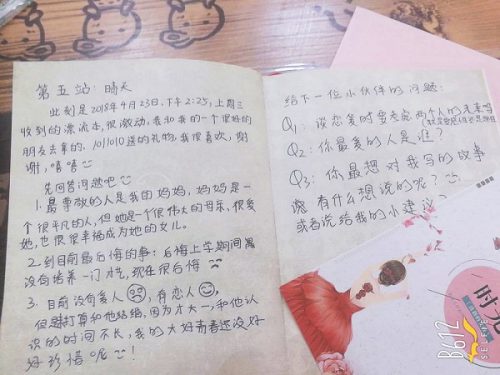 第五站：晴天
此刻是2018年4月23日.下午2:25，上周三
收到的漂流本，很激动，我和我的一个很好的
朋友去拿的，1011010送的礼物，我很喜欢，谢
谢，嘻嘻
先回答问题吧
1.最尊敬的人是我的妈妈，妈妈是一
个很平凡的人，但她是一个很伟大的母亲，很爱
她，也很很幸福成为她的女儿。
2.到目前最后悔的事：后悔上学期间
没有培养一门才艺，现在很后悔
3.目前没有爱人，有恋人，
但没打算和他结婚，因为才大一，和他认
识的时间不长，我的大好青春还没好
好珍惜呢！
给下一位小伙伴的问题：
Q1：谈恋爱时需考虑两个人的未来吗
Q2：你最爱的人是谁？
Q3：你最想对我写的故事
有什么想说的呢？
或者说给我的小建议？
时光
B612